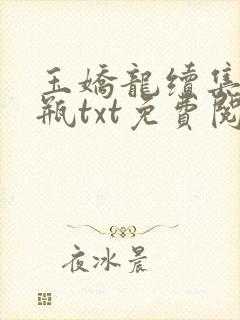 玉嬌龍續集
瓶txt免費閱
夜冰晨